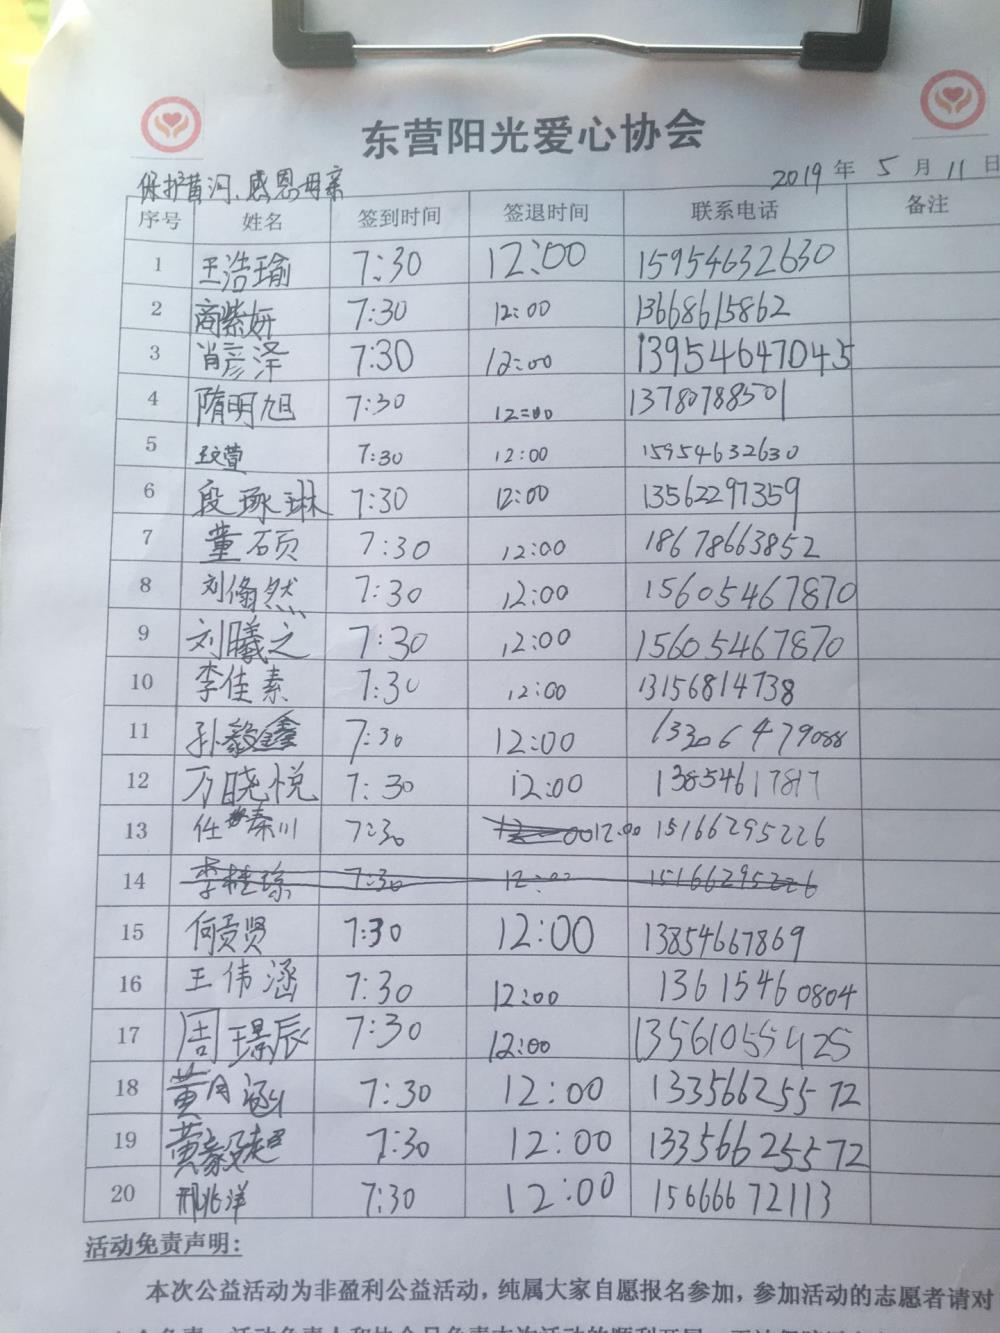 东营阳光爱心协会
保护黄河、感恩母亲 2019 年 5 月 11 日
序号 姓名 签到时间 签退时间 联系电话 备注
1 王浩瑜 7:30 12:00 15954632630
2 商紫妍 7:30 12:00 13668615862
3 肖彦泽 7:30 12:00 13954647045
4 隋明旭 7:30 12:00 13780788501
5 7:30 12:00 15954632630
6 段琢琳 7:30 12:00 13562297359
7 董硕 7:30 12:00 18678663852
8 刘翛然 7:30 12:00 15605467870
9 刘曦之 7:30 12:00 15605467870
10 李佳素 7:30 12:00 13156814738
11 孙毅鑫 7:30 12:00 13306479088
12 万晓悦 7:30 12:00 13854617817
13 任秦川 7:30 12:00 15166295226
14 李桂琼 7:30 12:00 15166295226
15 何贡贤 7:30 12:00 13854667869
16 王伟涵 7:30 12:00 13615460804
17 周璟辰 7:30 12:00 13561055425
18 黄月涵 7:30 12:00 13356625572
19 黄毅超 7:30 12:00 13356625572
20 邢兆洋 7:30 12:00 15666672113
活动免责声明:
本次公益活动为非盈利公益活动，纯属大家自愿报名参加，参加活动的志愿者请对